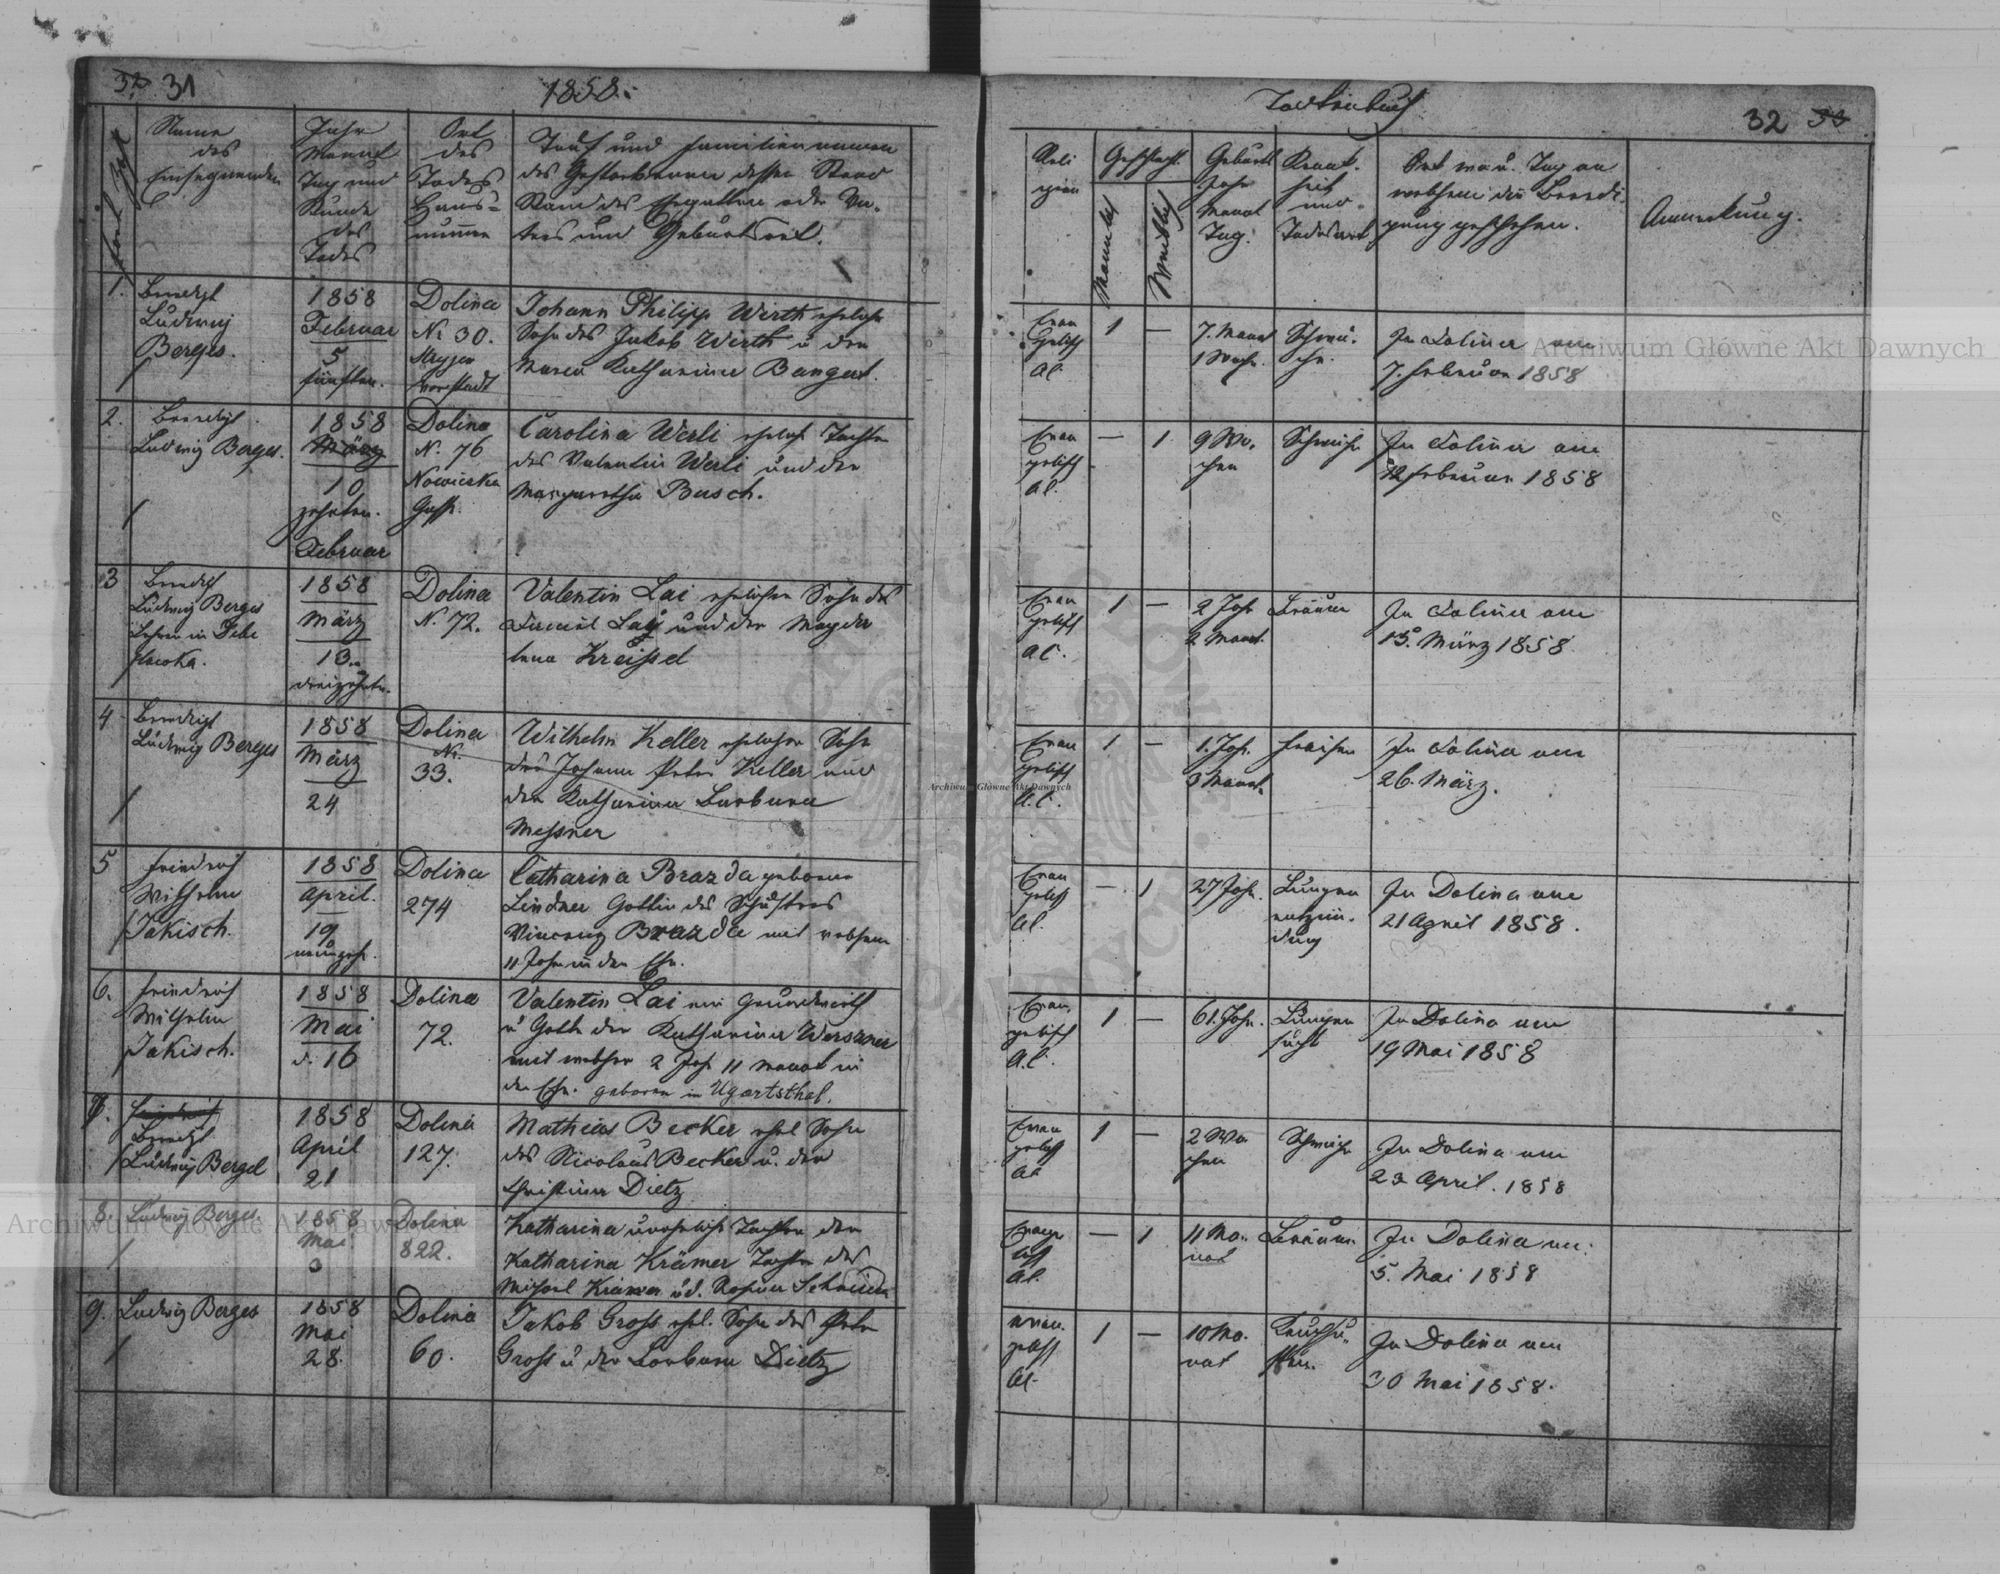 32 31
1858.
Name
des
Einsegnenden
Jahr
Monat
Tag und
Stunde
des
Todes
Ort
des
Todes
Haus-
nummer
Tauf und Familiennamen
des Gestorbenen dessen Stand
Name des Ehegatten oder Va-
ters und Geburtsort.
1.
Ludwig
Berges.
1858
Februar
5
fünften.
Dolina
N. 30.
vorstadt
Johann Philipp Wirth ehelicher
Sohn des Jakob Wirth u der
Maria Katharina Bangert.
2.
Ludwig Berges.
1858
März
10
zehnten.
Februar
Dolina
N. 76
Nowicska
Gasse.
Carolina Werli eheliche Tochter
des Valentin Werli und der
Margaretha Busch.
3
Ludwig Berges
1858
März
13.
dreizehnten.
Dolina
N. 72.
Valentin Lai ehelicher Sohn des
Daniel Lai und der Magda
lena Kreissel
4
Ludwig Berges
1858
März
24
Dolina
N.
33.
Wilhelm Keller ehelicher Sohn
des Johann Peter Keller und
der Katharina Barbara
Messner
5
Friedrich
Wilhelm
Jakisch.
1858
April.
19
neunzeh.
Dolina
274
Catharina Brazda geborene
Lindner Gattin des Schusters
Vincenz Brazda mit welchem
11 Jahr in der Ehe.
6.
Friedrich
Wilhelm
Jakisch.
1858
Mai
d. 16
Dolina
72.
Valentin Lai ein Grundwirth
u Gatte der Katharina
mit welcher 2 Jahr 11 Monat in
der Ehe. geboren in Ugartsthal.
7.
Friedrich
Ludwig Berges
1858
April
21
Dolina
127.
Mathias Becker ehel Sohn
des Nicolaus Becker u. der
Christina Dietz
8.
Ludwig Berges
1858
Mai
3
Dolina
822.
Katharina uneheliche Tochter der
Katharina Krämer Tochter des
Michael Krämer u. d. Rosina
9.
Ludwig Berges
1858
Mai
28.
Dolina
60.
Jakob Gross ehel. Sohn des Peter
Gross u der Barbara Dietz
Todtenbuch
32 33
Reli
gion
Geschlecht
Männlich
Weiblich
Geburts
Jahr
Monat
Tag.
Krank-
heit
und
Todesart
Ort wo u. Tag an
welchem die Beerdi
gung geschehen.
Anmerkung.
Evan
gelisch
AC.
1
—
7. Monat
1 Woche.
Schwä-
che.
In Dolina am
7. Februar 1858
Evan
gelisch
AC.
—
1
9 Wo-
chen
Schwäche
In Dolina am
12 Februar 1858
Evan
gelisch
AC.
1
—
2 Jahr
2 Monat.
Bräune
In Dolina am
15. März 1858
Evan
gelisch
A.C.
1
—
1. Jahr.
3 Monat.
Fraisen
In Dolina am
26. März.
Evan
gelisch
AC.
—
1
27 Jahr.
Lungen
entzün-
dung
In Dolina am
21 April 1858.
Evan-
gelisch
A.C.
1
—
61. Jahr.
Lungen
sucht
In Dolina am
19 Mai 1858
Evan
gelisch
AC
1
—
2 Wo
chen
Schwäche
In Dolina am
23 April. 1858
Evange
lisch
AC.
—
1
11 Mo-
nat
Bräune.
In Dolina am.
5. Mai 1858
evan.
gelisch
AC.
1
—
10 Mo.
nat
Keuchhu-
sten.
In Dolina am
30 Mai 1858.
Archiwum Główne Akt Dawnych
Archiwum Główne Akt Dawnych
Archiwum Główne Akt Dawnych